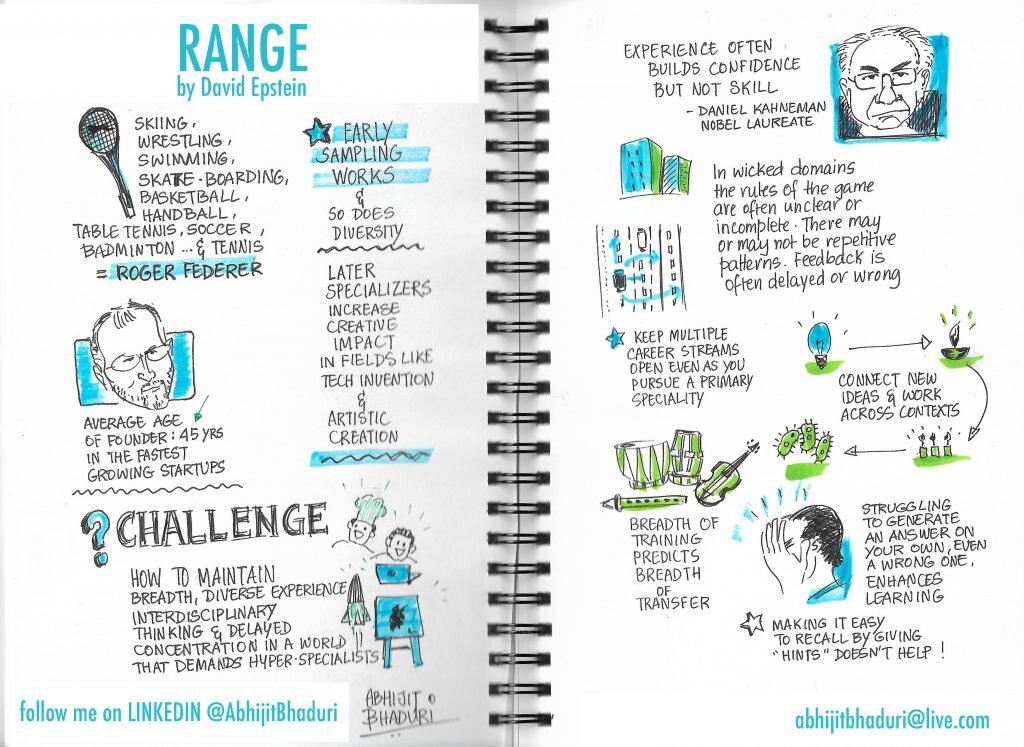 RANGE
by David Epstein
SKIING,
WRESTLING,
SWIMMING,
SKATE-BOARDING,
BASKETBALL,
HANDBALL,
TABLE TENNIS, SOCCER,
BADMINTON ... & TENNIS
= ROGER FEDERER
EARLY
SAMPLING
WORKS
&
SO DOES
DIVERSITY
LATER
SPECIALIZERS
INCREASE
CREATIVE
IMPACT
IN FIELDS LIKE
TECH INVENTION
&
ARTISTIC
CREATION
AVERAGE AGE
OF FOUNDER: 45 YRS
IN THE FASTEST
GROWING STARTUPS
? CHALLENGE
HOW TO MAINTAIN
BREADTH, DIVERSE EXPERIENCE
INTERDISCIPLINARY
THINKING & DELAYED
CONCENTRATION IN A WORLD
THAT DEMANDS HYPER-SPECIALISTS
ABHIJIT
BHADURI
follow me on LINKEDIN @AbhijitBhaduri
EXPERIENCE OFTEN
BUILDS CONFIDENCE
BUT NOT SKILL
- DANIEL KAHNEMAN
NOBEL LAUREATE
In wicked domains
the rules of the game
are often unclear or
incomplete. There may
or may not be repetitive
patterns. Feedback is
often delayed or wrong
KEEP MULTIPLE
CAREER STREAMS
OPEN EVEN AS YOU
PURSUE A PRIMARY
SPECIALITY
CONNECT NEW
IDEAS & WORK
ACROSS CONTEXTS
BREADTH OF
TRAINING
PREDICTS
BREADTH
OF
TRANSFER
STRUGGLING
TO GENERATE
AN ANSWER ON
YOUR OWN, EVEN
A WRONG ONE,
ENHANCES
LEARNING
MAKING IT EASY
TO RECALL BY GIVING
"HINTS" DOESN'T HELP !
abhijitbhaduri@live.com